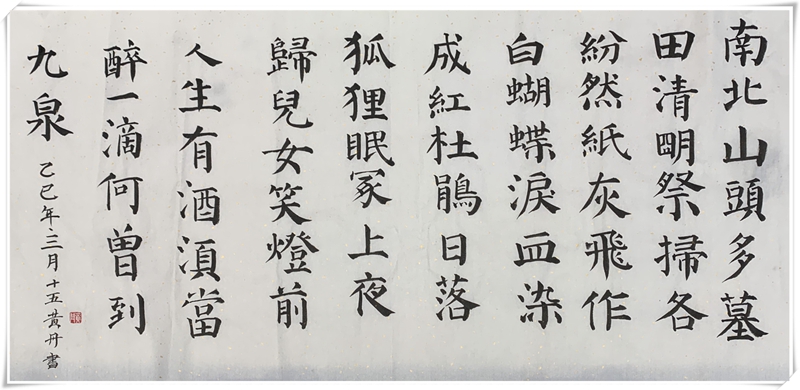 南北山頭多墓
田清明祭掃各
紛然紙灰飛作
白蝴蝶淚血染
成紅杜鵑日落
狐狸眠冢上夜
歸兒女笑燈前
人生有酒須當
醉一滴何曾到
九泉
乙巳年三月十五黃丹書